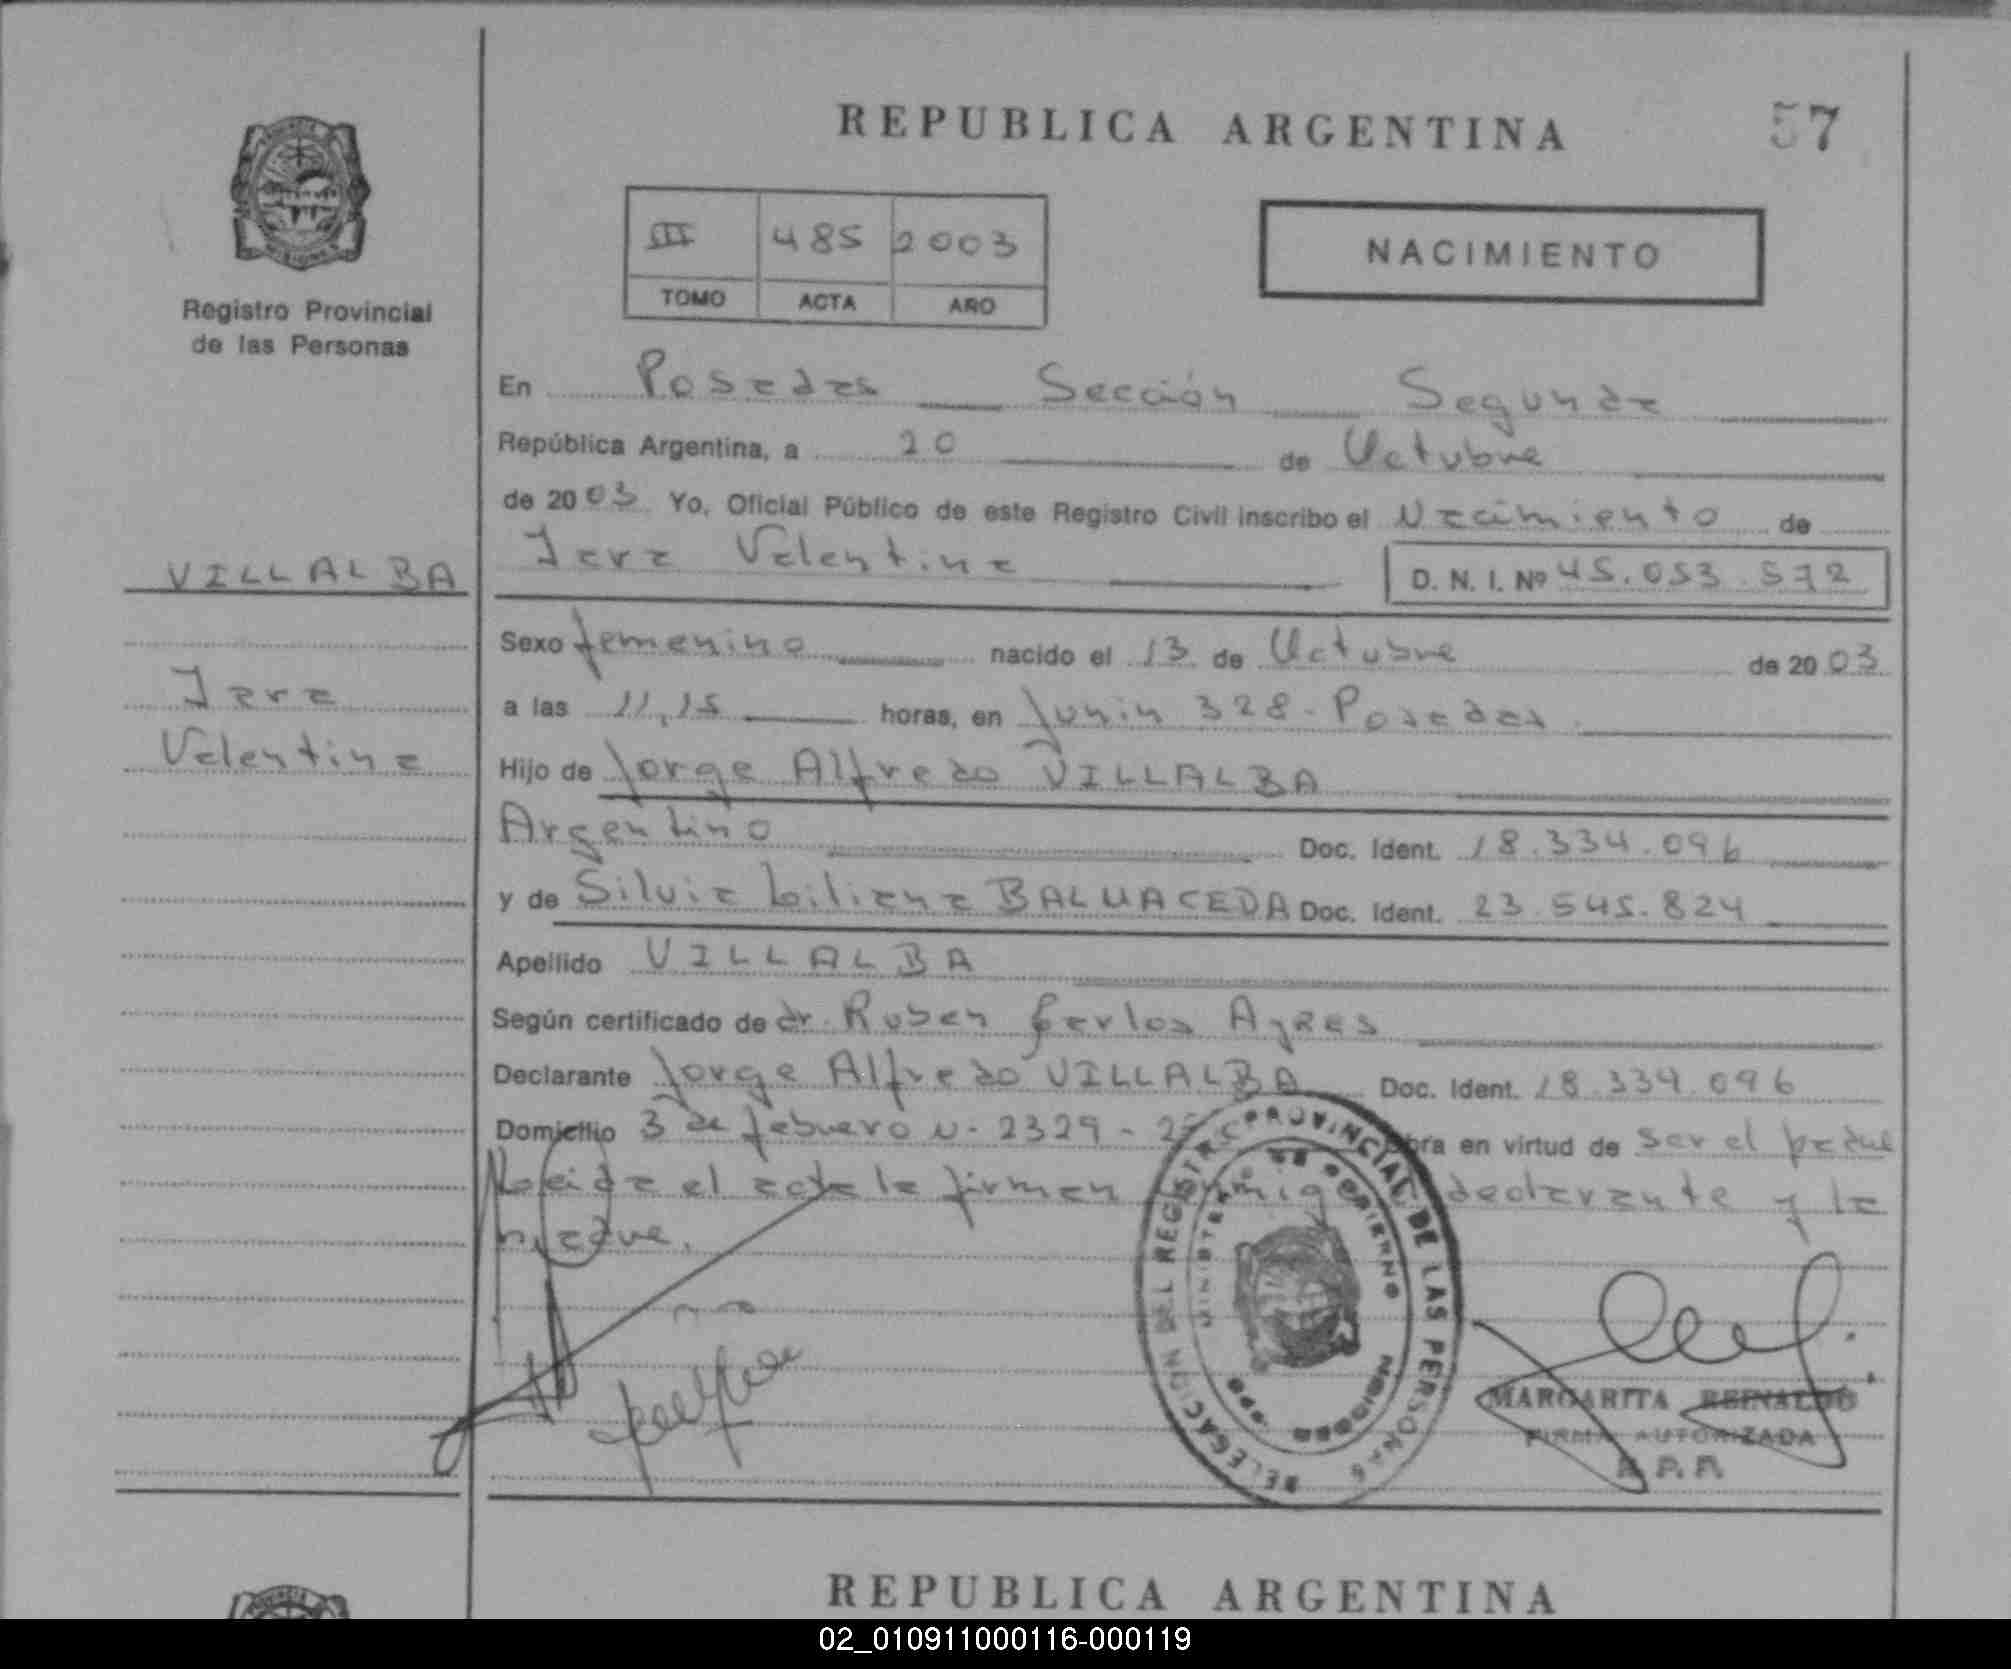 REPUBLICA ARGENTINA
57
III 485 2003
TOMO ACTA AÑO
NACIMIENTO
Registro Provincial
de las Personas
En Posadas Sección Segunda
República Argentina, a 20 de Octubre
de 2003 Yo, Oficial Público de este Registro Civil inscribo el Nacimiento de
VILLALBA
Iara Valentina
D. N. I. Nº 45.053.572
Sexo femenino nacido el 13 de Octubre de 2003
Iara
Valentina
a las 11,15 horas, en Junin 328 - Posadas
Hijo de Jorge Alfredo VILLALBA
Argentino Doc. Ident. 18.334.096
y de Silvia Liliana BALMACEDA Doc. Ident. 23.545.824
Apellido VILLALBA
Según certificado de dr. Ruben Carlos Ayres
Declarante Jorge Alfredo VILLALBA Doc. Ident. 18.334.096
Domicilio 3 de febrero N- 2329 - obra en virtud de ser el padre
Leida el acta la firman conmigo declarante y la
madre.
DELEGACION DEL REGISTRO PROVINCIAL DE LAS PERSONAS
MINISTERIO DE GOBIERNO
MARGARITA REINALDO
FIRMA AUTORIZADA
R. P. P.
REPUBLICA ARGENTINA
02_010911000116-000119